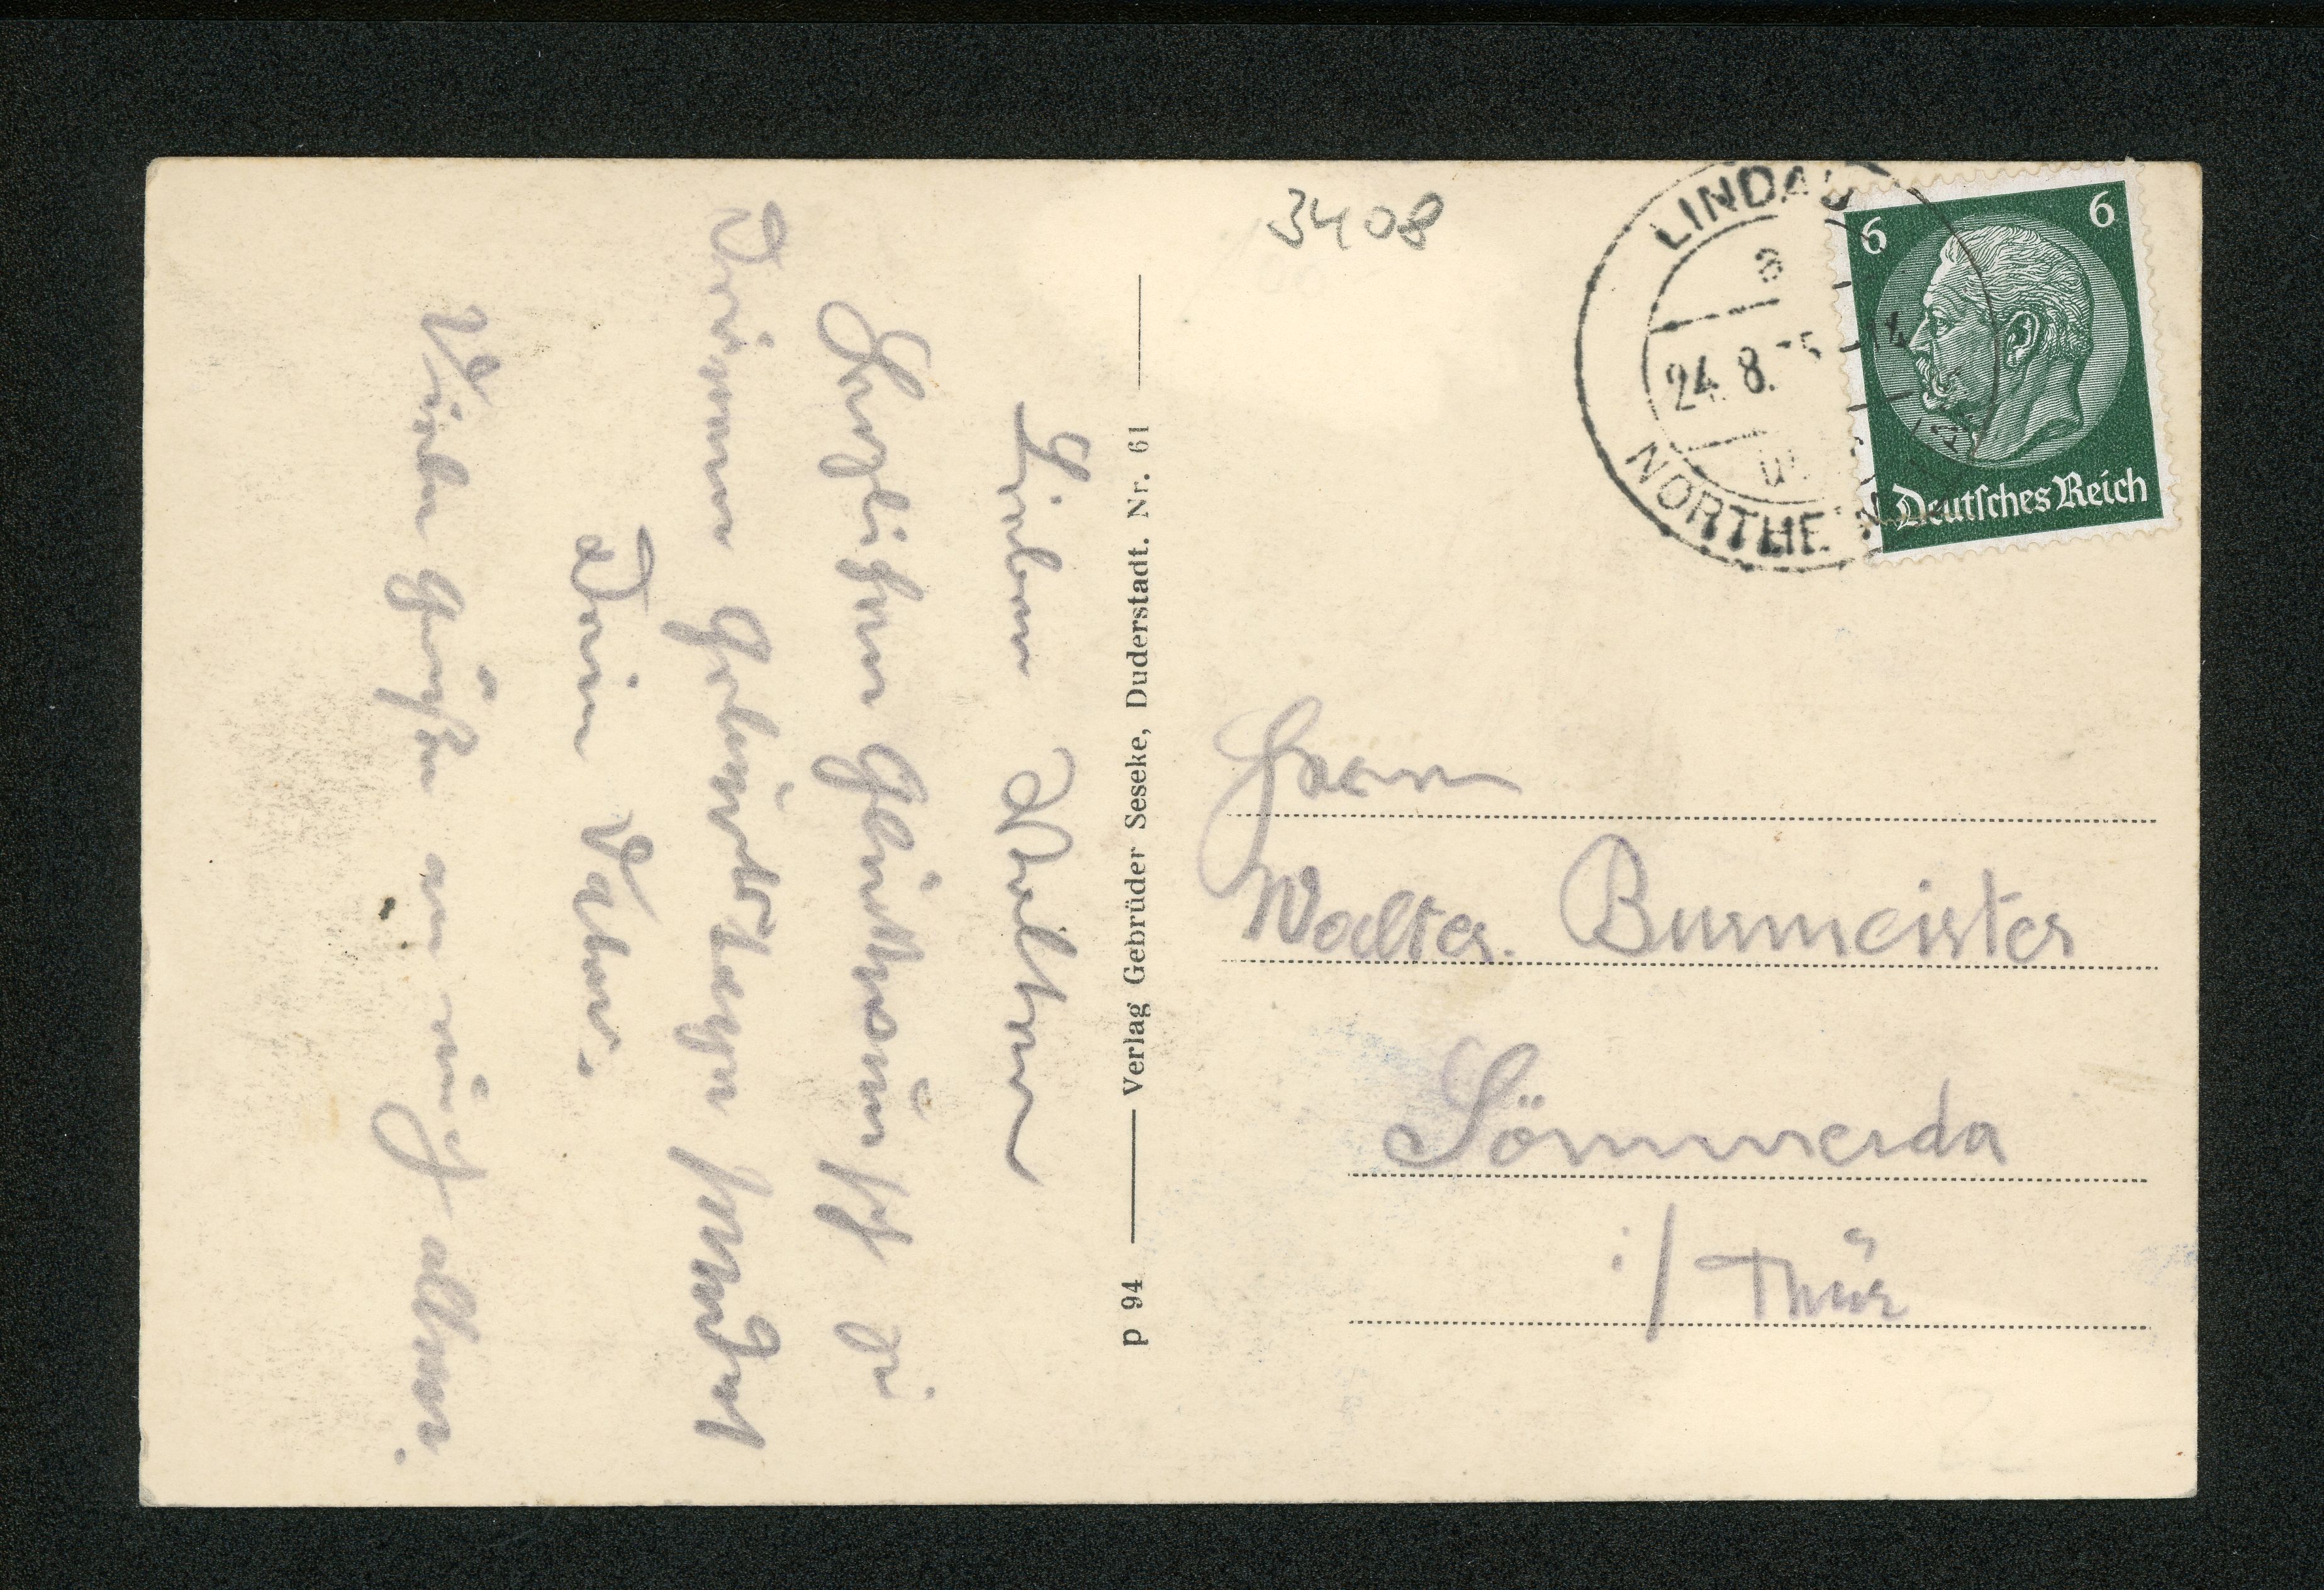 3408
LINDAU
a
24. 8.
NORTHEIM
6 6
Deutsches Reich
Lieber Walter
Herzlichen Glückwunsch zu
Deinem Geburtstage sendet
Dein Vater.
Viele Grüße an euch allen.
p 94 Verlag Gebrüder Seseke, Duderstadt. Nr. 61
Herrn
Walter Burmeister
Sömmerda
i/ Thür